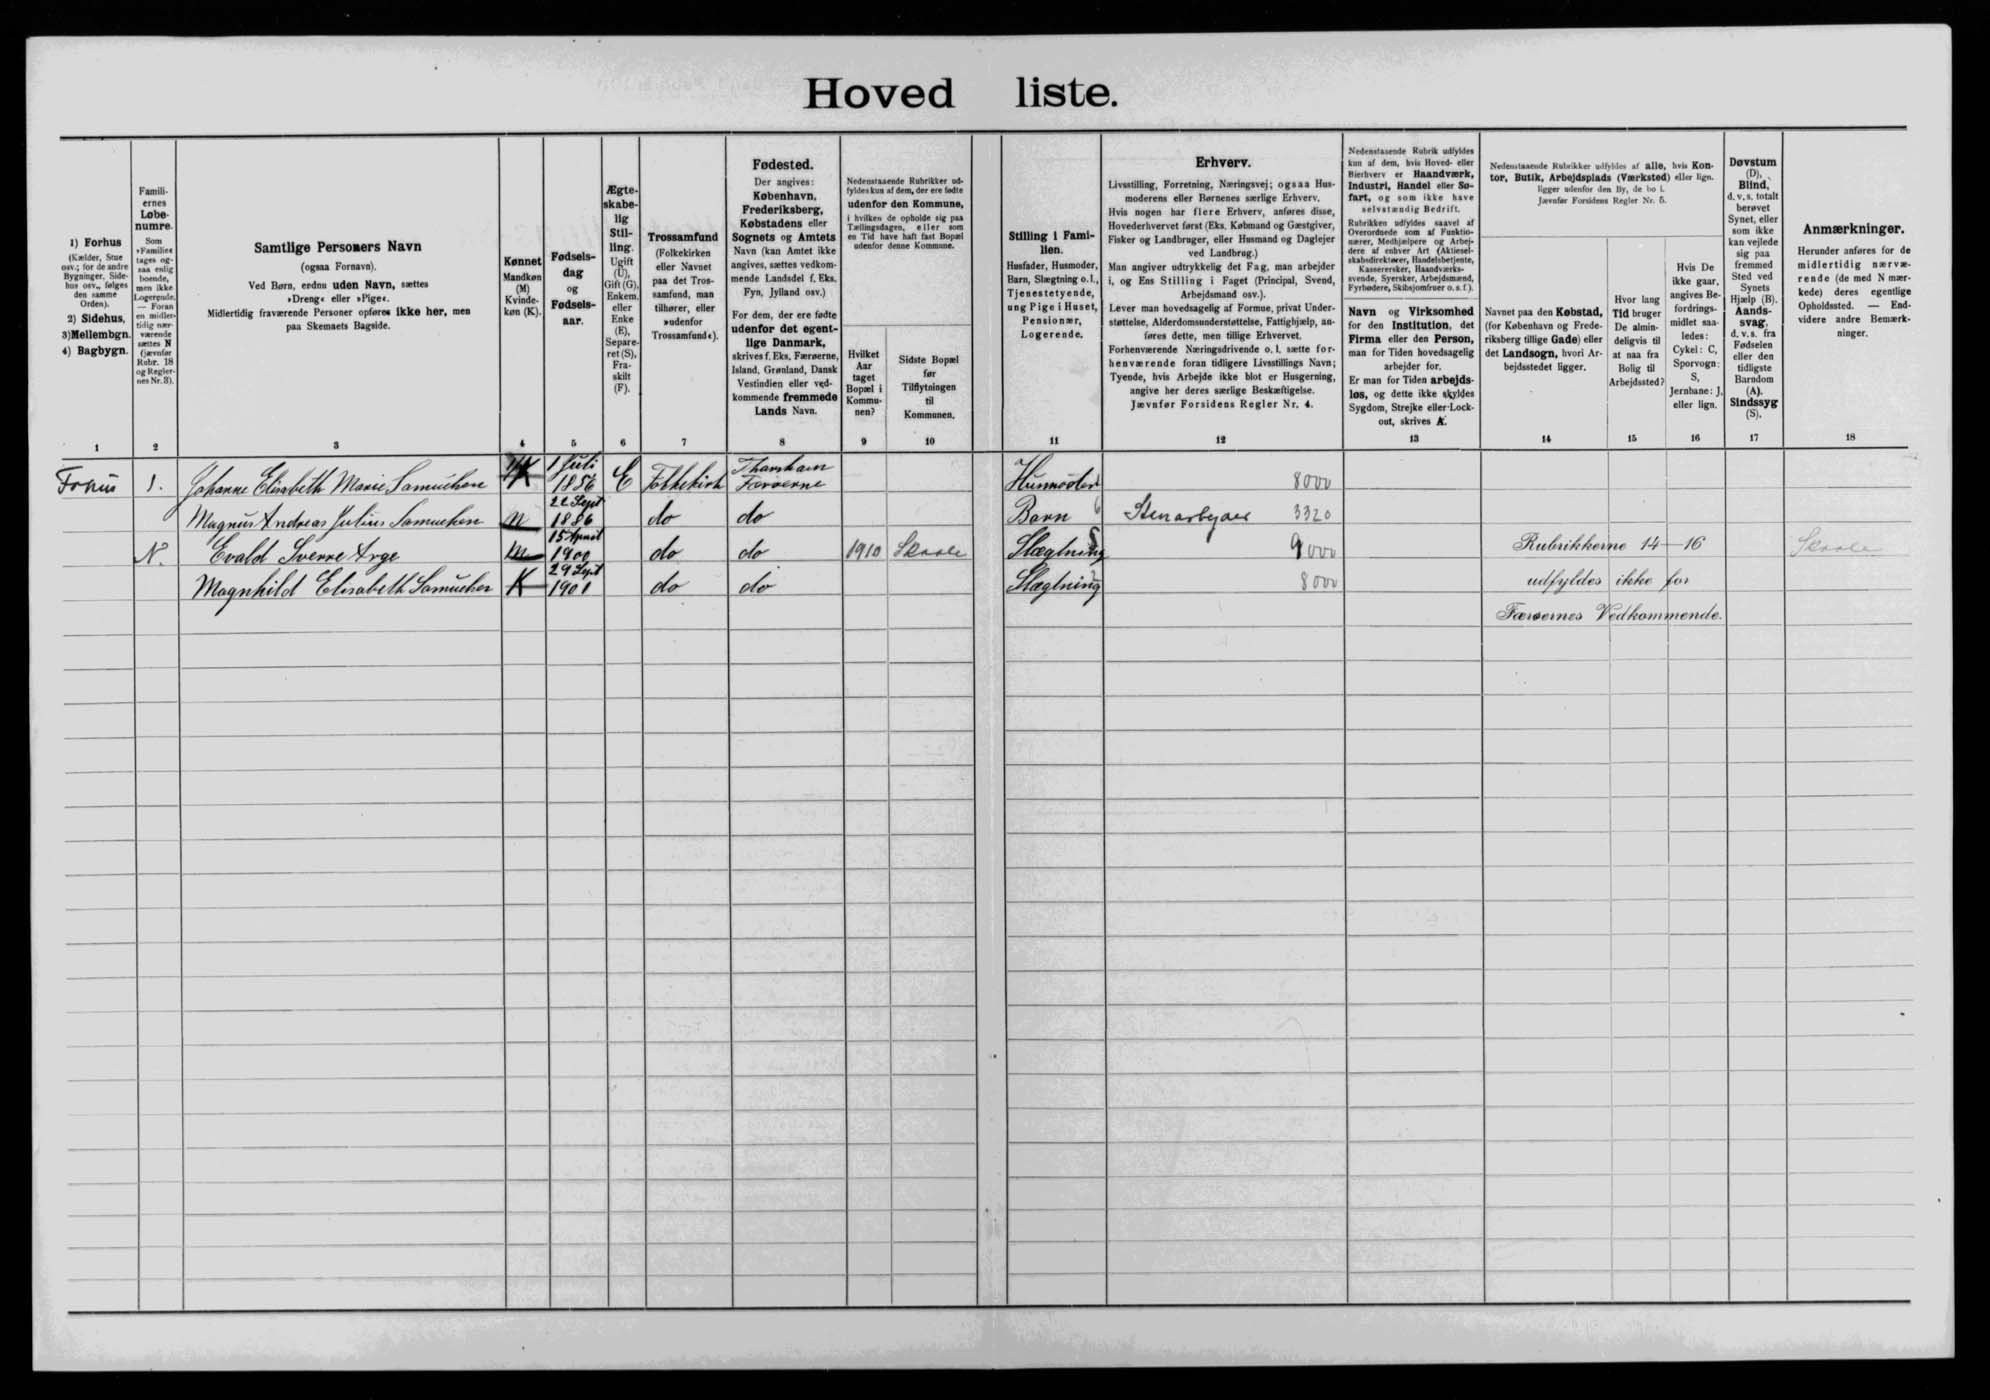 Hoved liste.
1) Forhus
(Kælder, Stue
osv.; for de andre
Bygninger, Side-
hus osv., følges
den samme
Orden).
2) Sidehus,
3) Mellembgn.
4) Bagbygn.
1
Famili-
ernes
Løbe-
numre.
Som
»Familie«
tages og-
saa enlig
boende,
men ikke
Logerende.
— Foran
en midler-
tidig nær-
værende
sættes N
(jævnfør
Rubr. 18
og Regler-
nes Nr. 3).
2
Samtlige Personers Navn
(ogsaa Fornavn).
Ved Børn, endnu uden Navn, sættes
»Dreng« eller »Pige«.
Midlertidig fraværende Personer opføres ikke her, men
paa Skemaets Bagside.
3
Kønnet
Mandkøn
(M)
Kvinde-
køn (K).
4
Fødsels-
dag
og
Fødsels-
aar.
5
Ægte-
skabe-
lig
Stil-
ling.
Ugift
(U),
Gift (G),
Enkem.
eller
Enke
(E),
Separe-
ret (S),
Fra-
skilt
(F).
6
Trossamfund
(Folkekirken
eller Navnet
paa det Tros-
samfund, man
tilhører, eller
»udenfor
Trossamfund«).
7
Fødested.
Der angives:
København,
Frederiksberg,
Købstadens eller
Sognets og Amtets
Navn (kan Amtet ikke
angives, sættes vedkom-
mende Landsdel f. Eks.
Fyn, Jylland osv.)
For dem, der ere fødte
udenfor det egent-
lige Danmark,
skrives f. Eks. Færøerne,
Island, Grønland, Dansk
Vestindien eller ved-
kommende fremmede
Lands Navn.
8
Nedenstaaende Rubrikker ud-
fyldes kun af dem, der ere fødte
udenfor den Kommune,
i hvilken de opholde sig paa
Tællingsdagen, eller som
en Tid have haft fast Bopæl
udenfor denne Kommune.
Hvilket
Aar
taget
Bopæl i
Kommu-
nen?
9
Sidste Bopæl
før
Tilflytningen
til
Kommunen.
10
Stilling i Fami-
lien.
Husfader, Husmoder,
Barn, Slægtning o. l.,
Tjenestetyende,
ung Pige i Huset,
Pensionær,
Logerende.
11
Erhverv.
Livsstilling, Forretning, Næringsvej; ogsaa Hus-
moderens eller Børnenes særlige Erhverv.
Hvis nogen har flere Erhverv, anføres disse,
Hovederhvervet først (Eks. Købmand og Gæstgiver,
Fisker og Landbruger, eller Husmand og Daglejer
ved Landbrug.)
Man angiver udtrykkelig det Fag, man arbejder
i, og Ens Stilling i Faget (Principal, Svend,
Arbejdsmand osv.).
Lever man hovedsagelig af Formue, privat Under-
støttelse, Alderdomsunderstøttelse, Fattighjælp, an-
føres dette, men tillige Erhvervet.
Forhenværende Næringsdrivende o. l. sætte for-
henværende foran tidligere Livsstillings Navn;
Tyende, hvis Arbejde ikke blot er Husgerning,
angive her deres særlige Beskæftigelse.
Jævnfør Forsidens Regler Nr. 4.
12
Nedenstaaende Rubrik udfyldes
kun af dem, hvis Hoved- eller
Bierhverv er Haandværk,
Industri, Handel eller Sø-
fart, og som ikke have
selvstændig Bedrift.
Rubrikken udfyldes saavel af
Overordnede som af Funktio-
nærer, Medhjælpere og Arbej-
dere af enhver Art (Aktiesel-
skabsdirektører, Handelsbetjente,
Kassererersker, Haandværks-
svende, Syersker, Arbejdsmænd,
Fyrbødere, Skibsjomfruer o. s. f.).
Navn og Virksomhed
for den Institution, det
Firma eller den Person,
man for Tiden hovedsagelig
arbejder for.
Er man for Tiden arbejds-
løs, og dette ikke skyldes
Sygdom, Strejke eller Lock-
out, skrives A.
13
Nedenstaaende Rubrikker udfyldes af alle, hvis Kon-
tor, Butik, Arbejdsplads (Værksted) eller lign.
ligger udenfor den By, de bo i.
Jævnfør Forsidens Regler Nr. 5.
Navnet paa den Købstad,
(for København og Frede-
riksberg tillige Gade) eller
det Landsogn, hvori Ar-
bejdsstedet ligger.
14
Hvor lang
Tid bruger
De almin-
deligvis til
at naa fra
Bolig til
Arbejdssted?
15
Hvis De
ikke gaar,
angives Be-
fordrings-
midlet saa-
ledes:
Cykel: C,
Sporvogn:
S,
Jernbane: J,
eller lign.
16
Døvstum
(D),
Blind,
d. v. s. totalt
berøvet
Synet, eller
som ikke
kan vejlede
sig paa
fremmed
Sted ved
Synets
Hjælp (B).
Aands-
svag,
d. v. s. fra
Fødselen
eller den
tidligste
Barndom
(A).
Sindssyg
(S).
17
Anmærkninger.
Herunder anføres for de
midlertidig nærvæ-
rende (de med N mær-
kede) deres egentlige
Opholdssted. — End-
videre andre Bemærk-
ninger.
18
Forhus 1. Johanne Elisabeth Marie Samuelsen K 1 Juli 1856 E Folkekirk Thorshavn Færøerne Husmoder 8000
Magnus Andreas Julius Samuelsen M 22 Sept 1886 do do Barn 6 Stenarbejder 3320
N. Evald Sverre Arge M 15 April 1900 do do 1910 Skaale Slægtning 8 9000 Rubrikkerne 14–16 Skaale
Magnhild Elisabeth Samuelsen K 29 Sept 1901 do do Slægtning 8000 udfyldes ikke for
Færøernes Vedkommende.